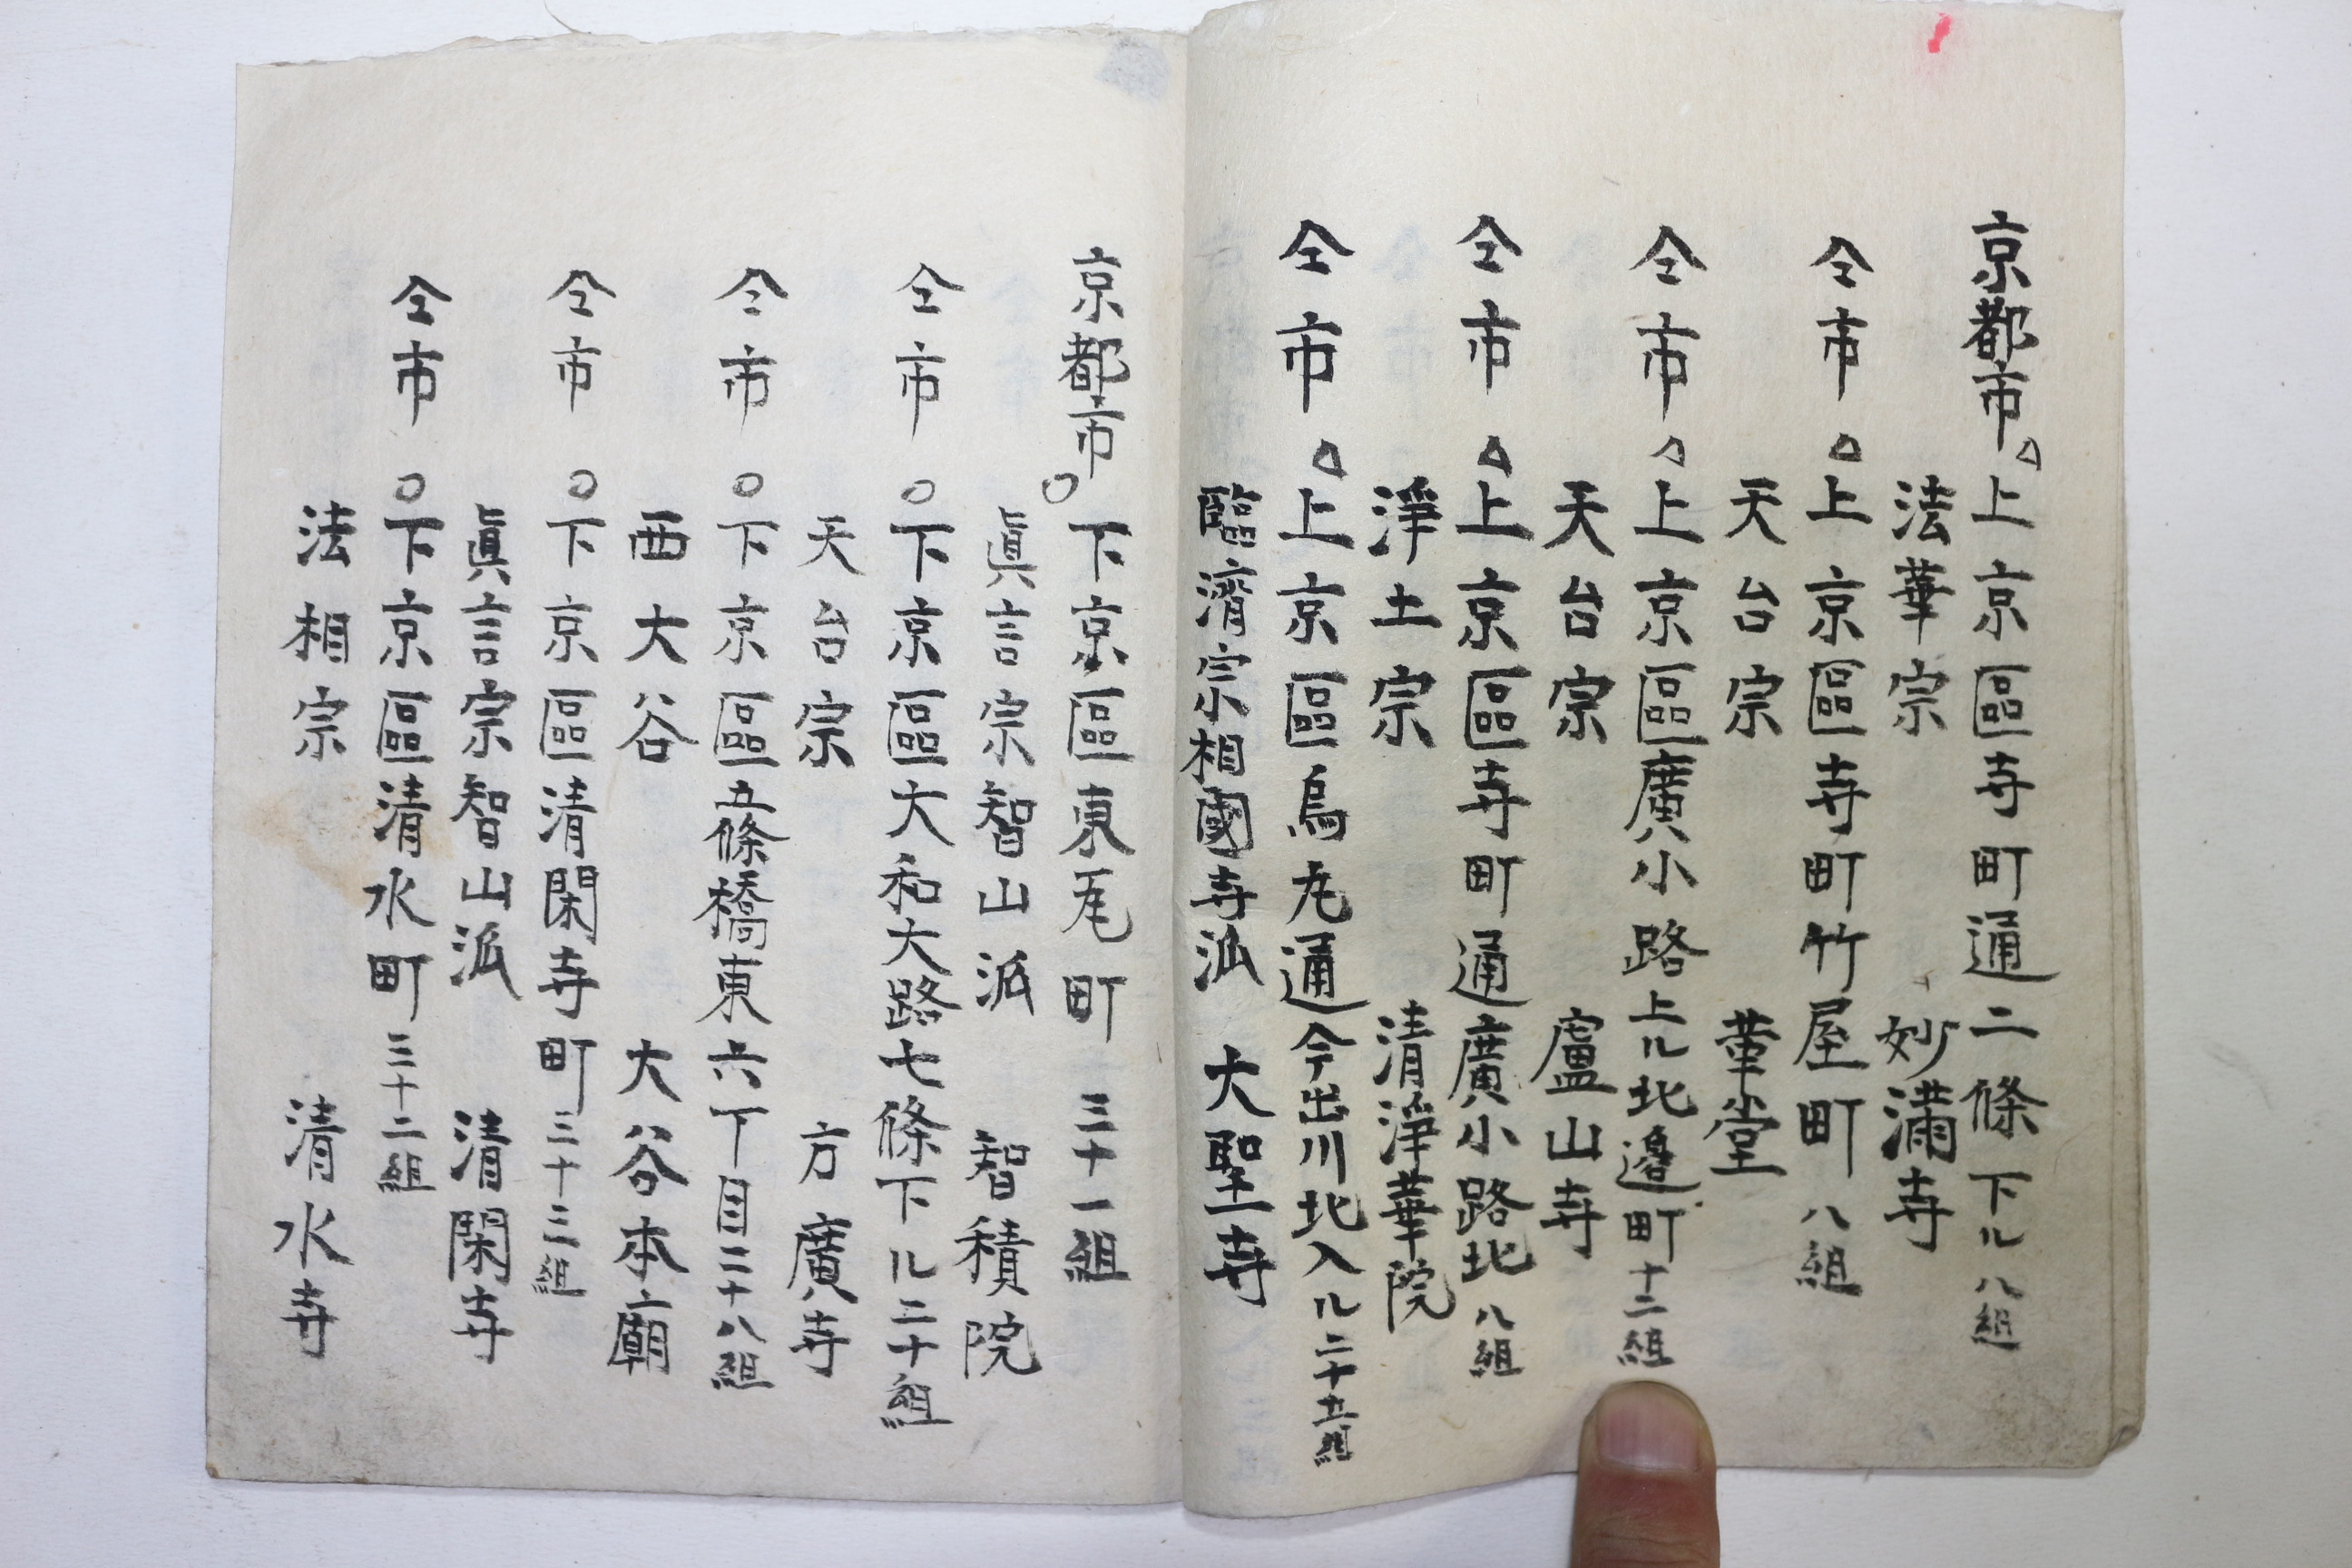 京都市△上京區寺町通二條下ル八組
法華宗 妙滿寺
仝市△上京區寺町竹屋町八組
天台宗 革堂
仝市△上京區廣小路上ル北邊町十二組
天台宗 廬山寺
仝市△上京區寺町通廣小路北八組
淨土宗 清淨華院
仝市△上京區烏丸通今出川北入ル二十五組
臨濟宗相國寺派 大聖寺
京都市○下京區東瓦町三十一組
眞言宗智山派 智積院
仝市○下京區大和大路七條下ル二十組
天台宗 方廣寺
仝市○下京區五條橋東六丁目二十八組
西大谷 大谷本廟
仝市○下京區清閑寺町三十三組
眞言宗智山派 清閑寺
仝市○下京區清水町三十二組
法相宗 清水寺